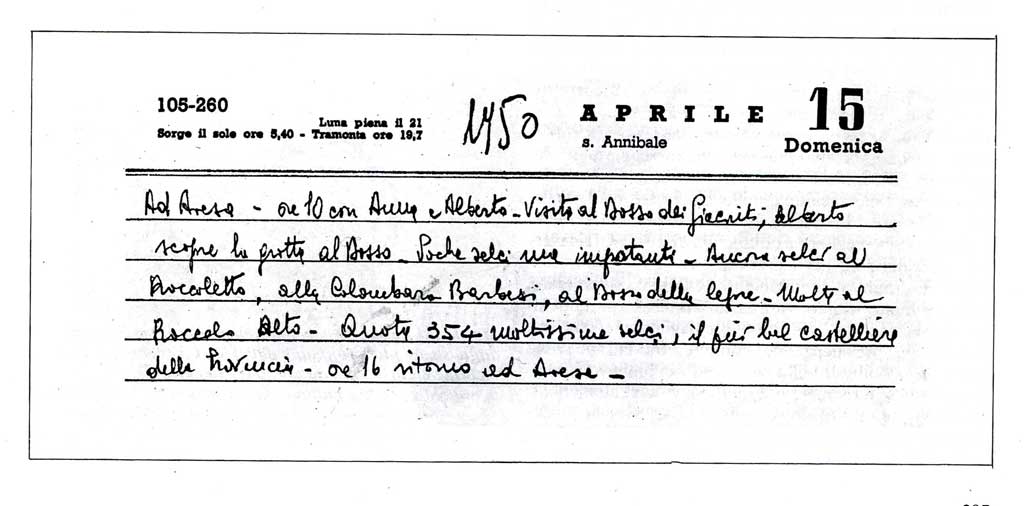 105-260
Luna piena il 21
Sorge il sole ore 5,40 - Tramonta ore 19,7
1950
APRILE 15
s. Annibale
Domenica
Ad Avesa - ore 10 con Anna e Alberto - Visita al Bosso dei Giacinti; Alberto
scopre la grotta al Bosso - Poche selci ma importanti - Ancora selci al
Roccoletto, alla Colombara Barbesi, al Bosso delle legne - Molte al
Roccolo Alto - Quota 354 moltissime selci, il più bel castelliere
della Provincia - ore 16 ritorno ad Avesa -